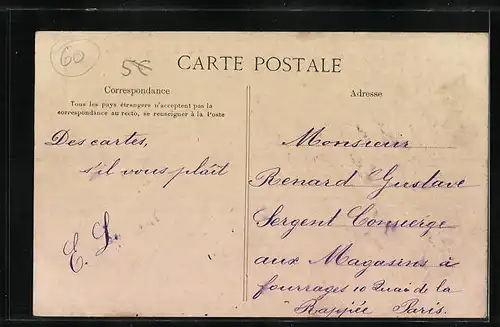 60
5€
CARTE POSTALE
Correspondance
Tous les pays étrangers n'acceptent pas la
correspondance au recto, se renseigner à la Poste
Des cartes,
s'il vous plaît
E. L.
Adresse
Monsieur
Renard Gustave
Sergent Concierge
aux Magasins à
fourrages 10 Quai de la
Rappée Paris.